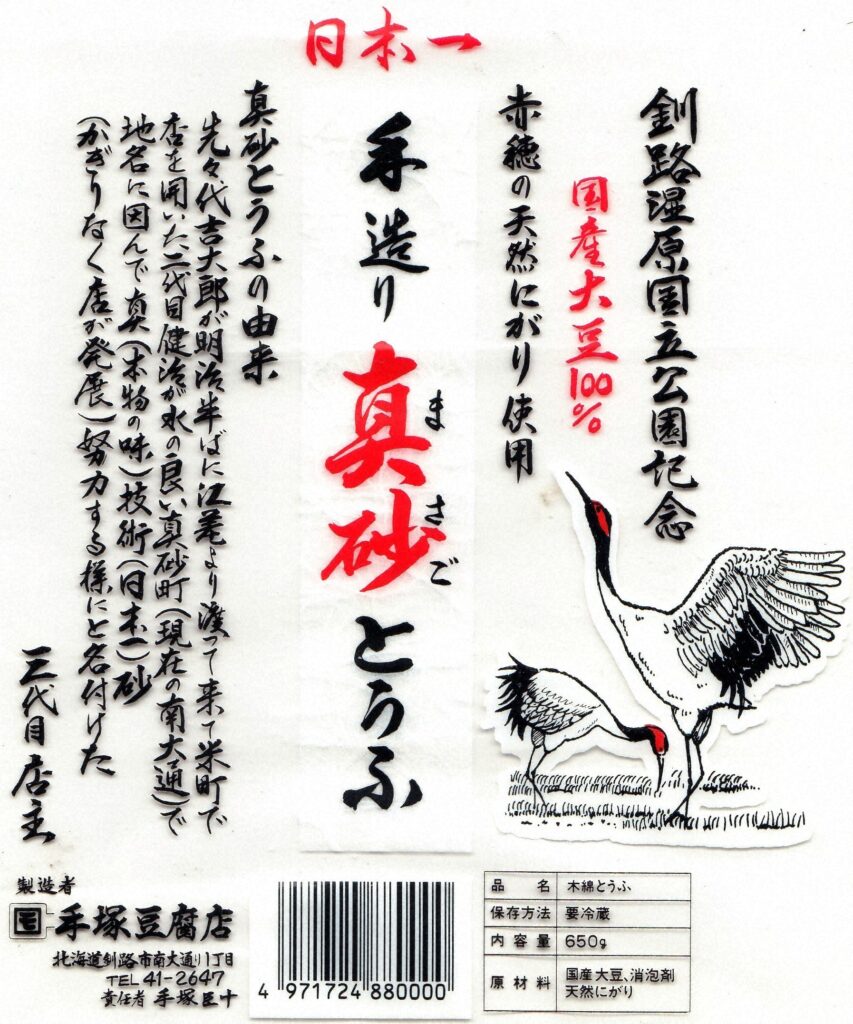 日本一
釧路湿原国立公園記念
国産大豆100%
赤穂の天然にがり使用
手造り真砂とうふ
まさご
真砂とうふの由来
先々代吉太郎が明治半ばに江差より渡って来て米町で
店を開いた二代目健治が水の良い真砂町(現在の南大通)で
地名に因んで真(本物の味)技術(日本一)砂
(かぎりなく店が発展)努力する様にと名付けた
三代目店主
製造者
手塚豆腐店
北海道釧路市南大通り1丁目
TEL 41-2647
責任者 手塚臣十
4 971724 880000
品名 木綿とうふ
保存方法 要冷蔵
内容量 650g
原材料 国産大豆、消泡剤
天然にがり